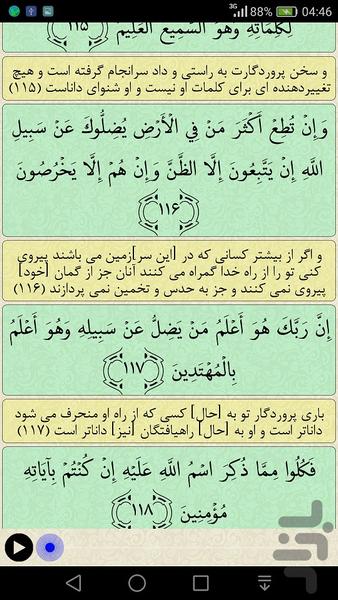 3G 88% 04:46
لِكَلِمَاتِهِ وَهُوَ السَّمِيعُ الْعَلِيمُ ﴿١١٥﴾
و سخن پروردگارت به راستی و داد سرانجام گرفته است و هیچ
تغییردهنده ای برای کلمات او نیست و او شنوای داناست (۱۱۵)
وَإِنْ تُطِعْ أَكْثَرَ مَنْ فِي الْأَرْضِ يُضِلُّوكَ عَنْ سَبِيلِ
اللَّهِ إِنْ يَتَّبِعُونَ إِلَّا الظَّنَّ وَإِنْ هُمْ إِلَّا يَخْرُصُونَ
﴿١١٦﴾
و اگر از بیشتر کسانی که در [این سر]زمین می باشند پیروی
کنی تو را از راه خدا گمراه می کنند آنان جز از گمان [خود]
پیروی نمی کنند و جز به حدس و تخمین نمی پردازند (۱۱۶)
إِنَّ رَبَّكَ هُوَ أَعْلَمُ مَنْ يَضِلُّ عَنْ سَبِيلِهِ وَهُوَ أَعْلَمُ
بِالْمُهْتَدِينَ ﴿١١٧﴾
باری پروردگار تو به [حال] کسی که از راه او منحرف می شود
داناتر است و او به [حال] راهیافتگان [نیز] داناتر است (۱۱۷)
فَكُلُوا مِمَّا ذُكِرَ اسْمُ اللَّهِ عَلَيْهِ إِنْ كُنْتُمْ بِآيَاتِهِ
مُؤْمِنِينَ ﴿١١٨﴾
بازار